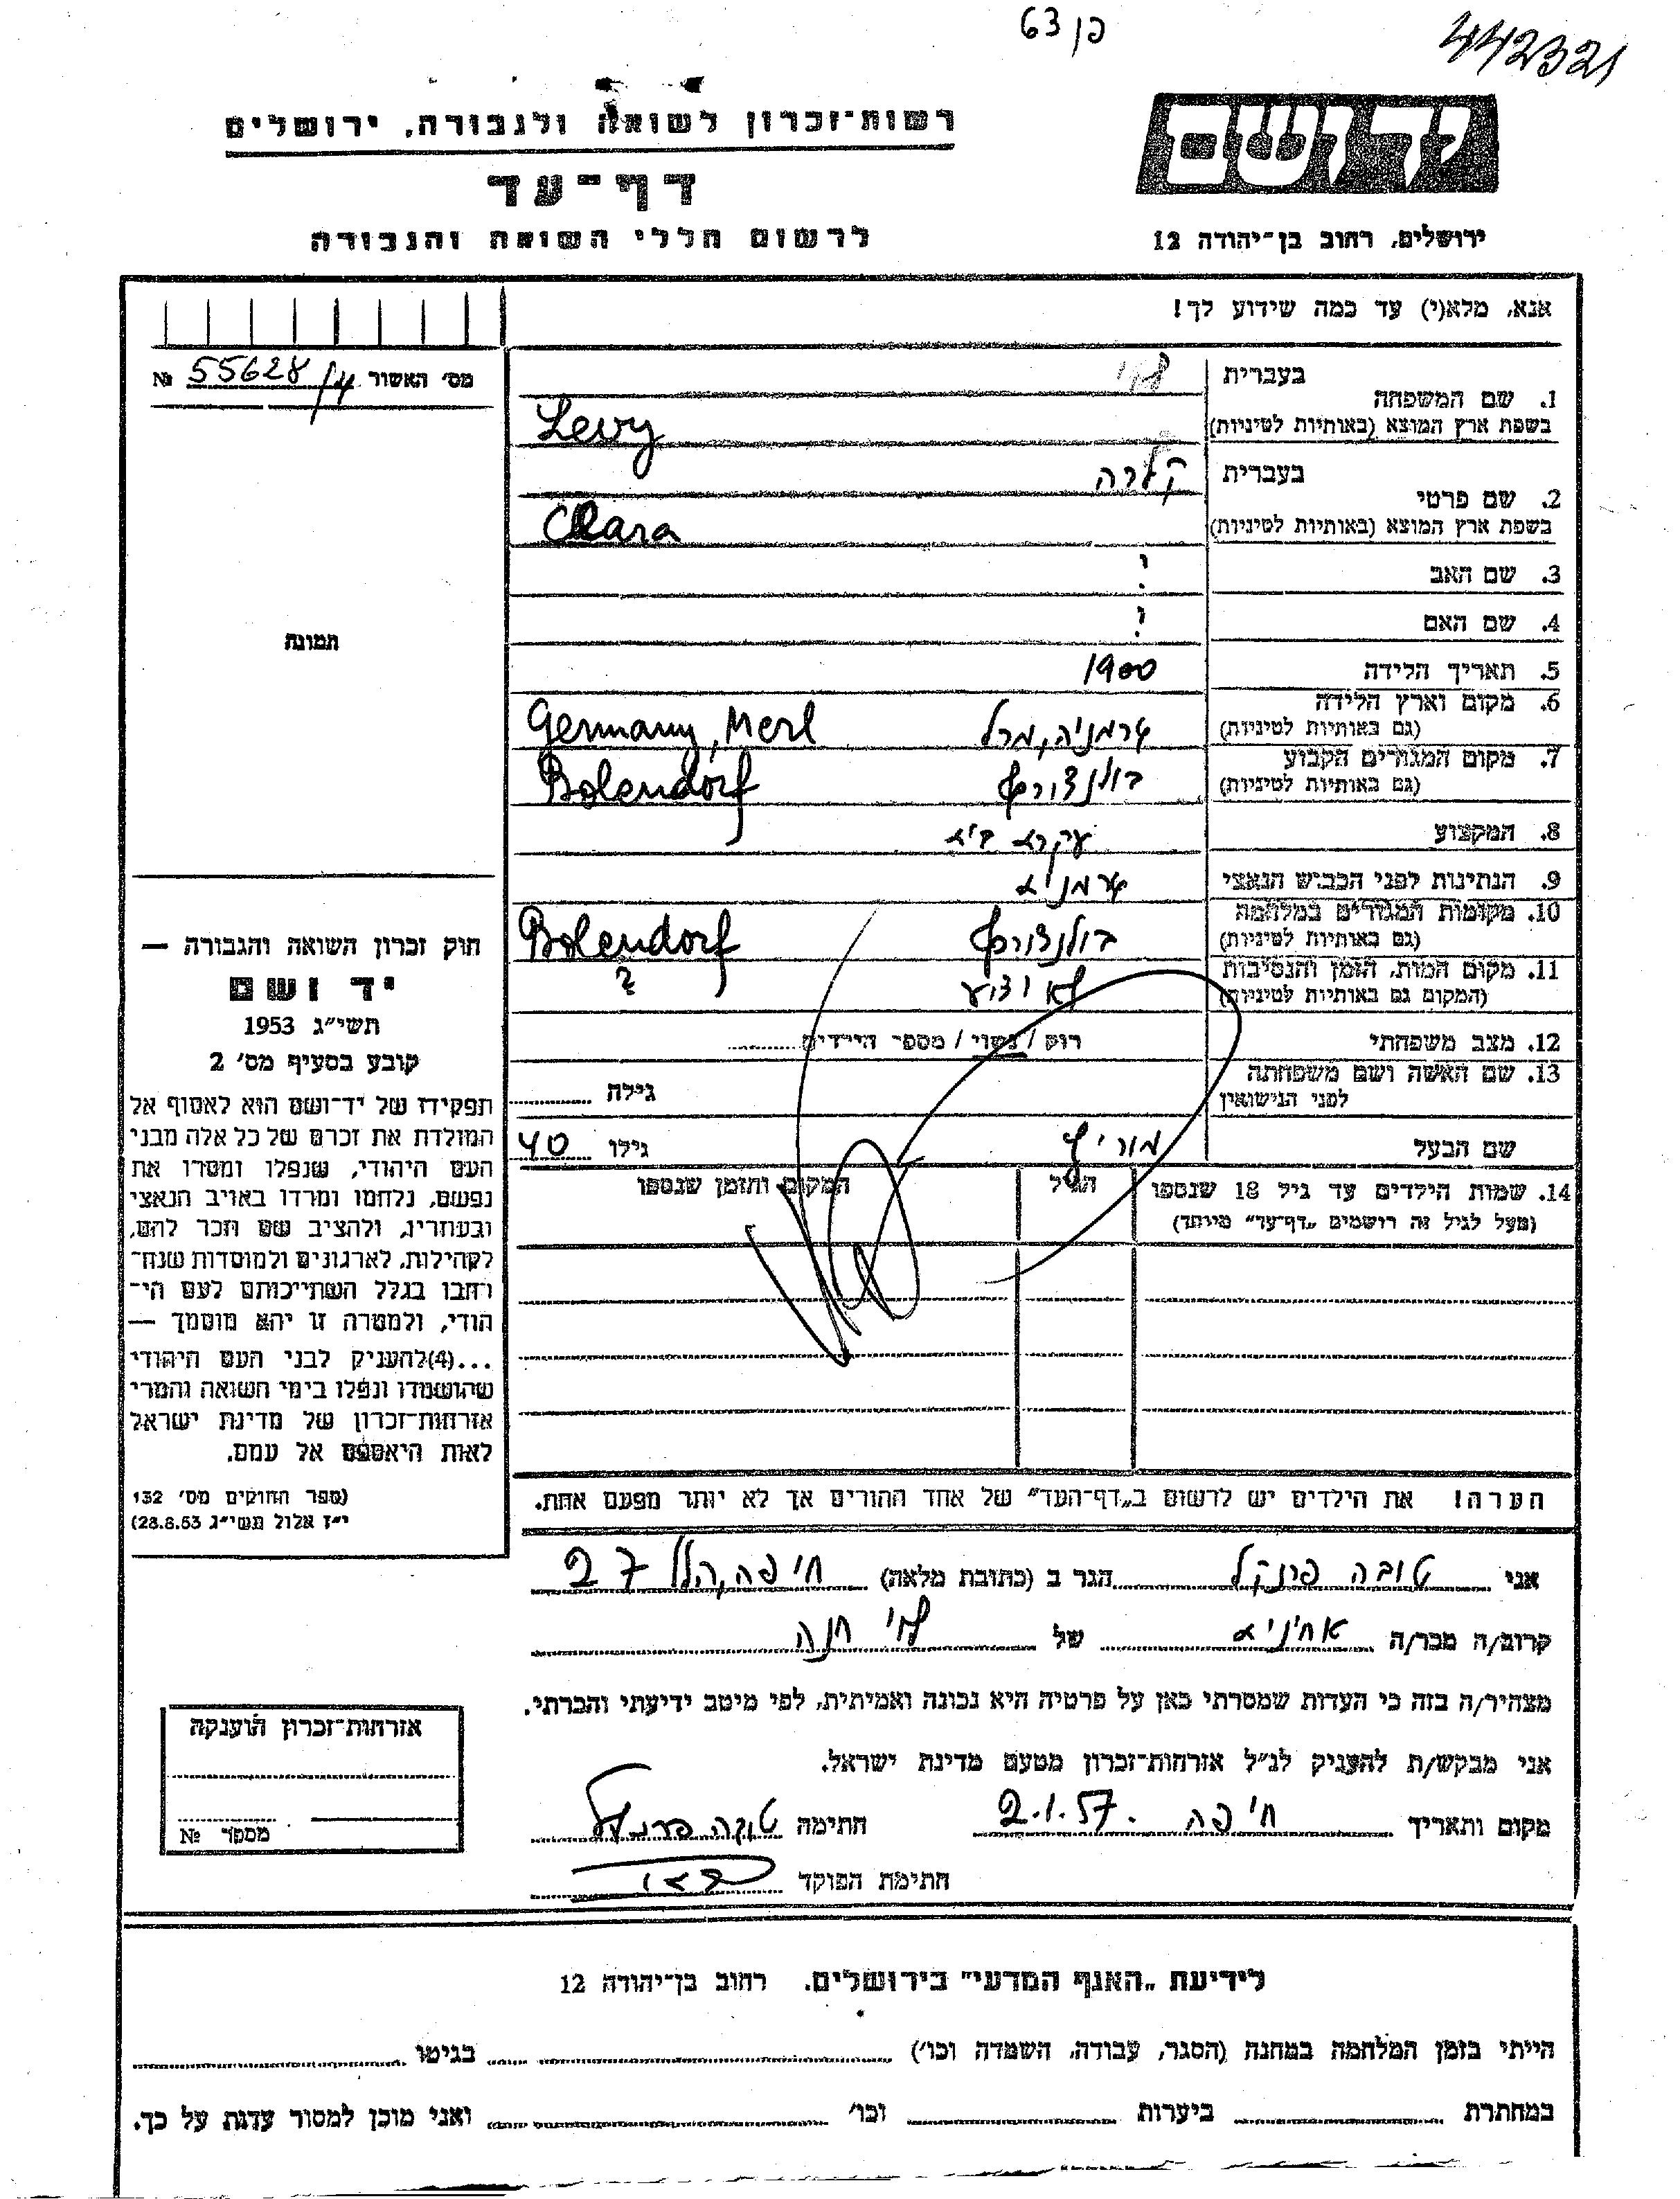 כן 63
442321
יד ושם
רשות־זכרון לשואה ולגבורה, ירושלים
דף־עד
לרשום חללי השואה והגבורה
ירושלים, רחוב בן־יהודה 12
אנא, מלא(י) עד כמה שידוע לך!
מס׳ האשור 55628/4 №
תמונה
חוק זכרון השואה והגבורה —
יד ושם
תשי״ג 1953
קובע בסעיף מס׳ 2
תפקידו של יד־ושם הוא לאסוף אל
המולדת את זכרם של כל אלה מבני
העם היהודי, שנפלו ומסרו את
נפשם, נלחמו ומרדו באויב הנאצי
ובעוזריו, ולהציב שם וזכר להם,
לקהילות, לארגונים ולמוסדות שנח־
רבו בגלל השתייכותם לעם הי־
הודי, ולמטרה זו יהא מוסמך —
...(4)להעניק לבני העם היהודי
שהושמדו ונפלו בימי השואה והמרי
אזרחות־זכרון של מדינת ישראל
לאות היאספם אל עמם.
(ספר החוקים מס׳ 132
י״ז אלול תשי״ג 28.8.53)
בעברית לוי
1. שם המשפחה
בשפת ארץ המוצא (באותיות לטיניות) Levy
בעברית קלרה
2. שם פרטי
בשפת ארץ המוצא (באותיות לטיניות) Clara
3. שם האב ?
4. שם האם ?
5. תאריך הלידה 1900
6. מקום וארץ הלידה
(גם באותיות לטיניות) גרמניה, מרל Germany, Merl
7. מקום המגורים הקבוע
(גם באותיות לטיניות) בולנדורף Bolendorf
8. המקצוע עקרת בית
9. הנתינות לפני הכביש הנאצי גרמניה
10. מקומות המגורים במלחמה
(גם באותיות לטיניות) בולנדורף Bolendorf
11. מקום המות, הזמן והנסיבות
(המקום גם באותיות לטיניות) לא ידוע ?
12. מצב משפחתי רוק / נשוי / מספר הילדים
13. שם האשה ושם משפחתה
לפני הנישואין גילה
שם הבעל מוריץ גילו 40
14. שמות הילדים עד גיל 18 שנספו הגיל המקום והזמן שנספו
(מעל לגיל זה רושמים „דף־עד״ מיוחד)
הערה! את הילדים יש לרשום ב„דף־העד״ של אחד ההורים אך לא יותר מפעם אחת.
אני טובה פרנקל הגר ב (כתובת מלאה) חיפה, הלל 27
קרוב/ה מכר/ה אחינית של לוי חנה
מצהיר/ה בזה כי העדות שמסרתי כאן על פרטיה היא נכונה ואמיתית, לפי מיטב ידיעתי והכרתי.
אני מבקש/ת להעניק לנ״ל אזרחות־זכרון מטעם מדינת ישראל.
מקום ותאריך חיפה 2.1.57. חתימה טובה פרנקל
חתימת הפוקד
אזרחות־זכרון הוענקה
מספר №
לידיעת „האגף המדעי״ בירושלים. רחוב בן־יהודה 12
הייתי בזמן המלחמה במחנה (הסגר, עבודה, השמדה וכו׳) בגיטו
במחתרת ביערות וכו׳ ואני מוכן למסור עדות על כך.